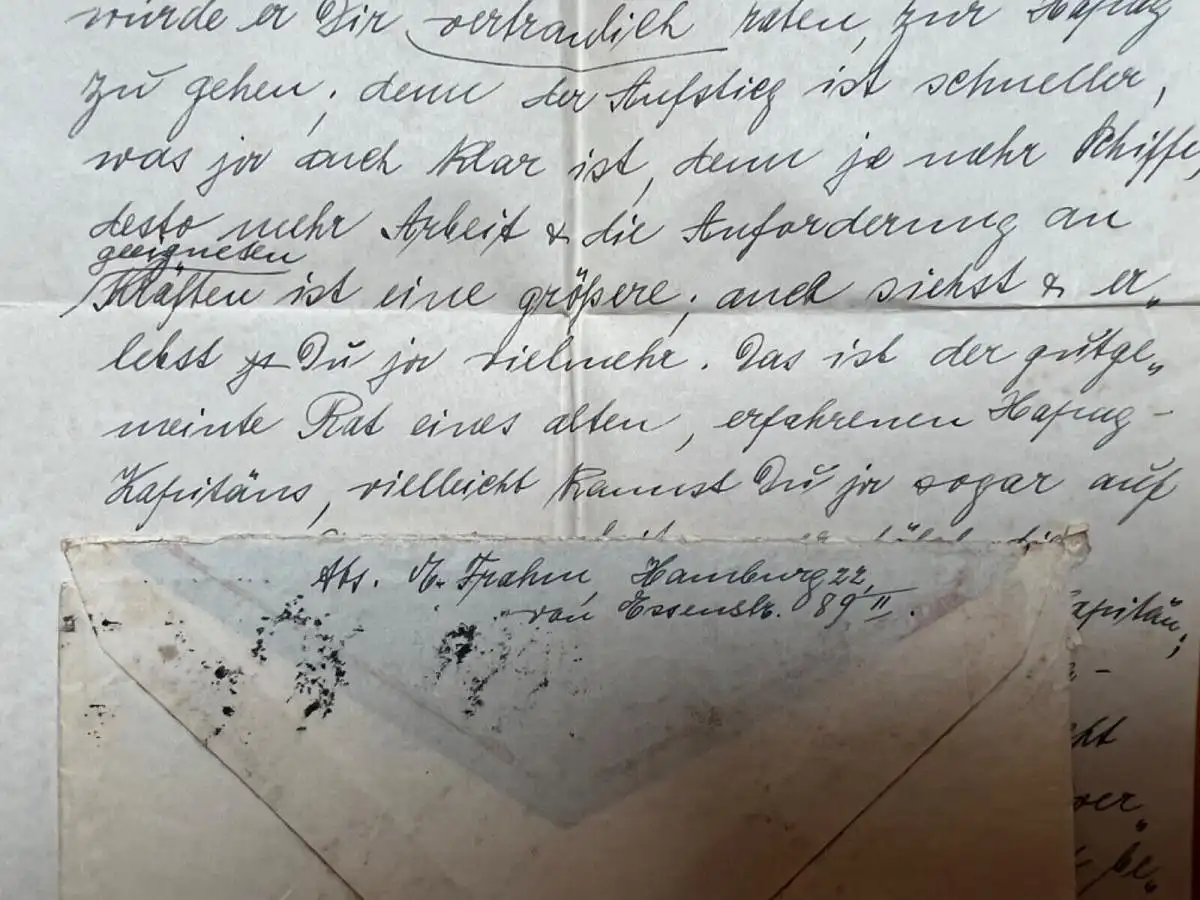 würde er Dir vertraulich raten, zur Hapag
zu gehen, denn der Aufstieg ist schneller,
was ja auch klar ist, denn je mehr Schiffe,
desto mehr Arbeit & die Anforderung an
geeigneten
Kräften ist eine größere, auch siehst & er„
lebst Du ja vielmehr. Das ist der gutge„
meinte Rat eines alten, erfahrenen Hapag-
Kapitäns, vielleicht kannst Du ja sogar auf
Abs. M. Frahm, Hamburg 22,
von Essenstr. 89 II.